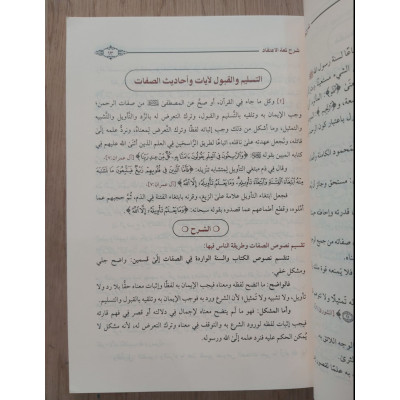 شرح لمعة الاعتقاد
التسليم والقبول لآيات وأحاديث الصفات
[٤] وكل ما جاء في القرآن، أو صحَّ عن المصطفى ﷺ من صفات الرحمن؛
وجب الإيمان به وتلقيه بالتسليم والقبول، وترك التعرض له بالرَّد والتأويل والتَّشبيه
والتمثيل، وما أشكل من ذلك وجب إثباته لفظًا وترك التعرض لمعناه، ونردُّ علمه إلى
قائله، ونجعل عهدته على ناقله، اتباعًا لطريق الراسخين في العلم الذين أثنى الله عليهم في
كتابه المبين بقوله ﷾: ﴿وَالرَّاسِخُونَ فِي الْعِلْمِ يَقُولُونَ آمَنَّا بِهِ كُلٌّ مِنْ عِنْدِ رَبِّنَا﴾ [آل عمران: ٧].
وقال في ذم مبتغي التأويل لمتشابه تنزيله: ﴿فَأَمَّا الَّذِينَ فِي قُلُوبِهِمْ زَيْغٌ فَيَتَّبِعُونَ مَا تَشَابَهَ
مِنْهُ ابْتِغَاءَ الْفِتْنَةِ وَابْتِغَاءَ تَأْوِيلِهِ وَمَا يَعْلَمُ تَأْوِيلَهُ إِلَّا اللَّهُ﴾ [آل عمران: ٧].
فجعل ابتغاء التأويل علامة على الزيغ، وقرنه بابتغاء الفتنة في الذم، ثمَّ حجبهم عما
أمَّلوه، وقطع أطماعهم عما قصدوه بقوله سبحانه: ﴿وَمَا يَعْلَمُ تَأْوِيلَهُ إِلَّا اللَّهُ﴾.
الشرح
تقسيم نصوص الصفات وطريقة الناس فيها:
تنقسم نصوص الكتاب والسنة الواردة في الصفات إلى قسمين: واضح جلي
ومشكل خفي.
فالواضح: ما اتضح لفظه ومعناه فيجب الإيمان به لفظًا وإثبات معناه حقًا بلا رد ولا
تأويل، ولا تشبيه ولا تمثيل؛ لأن الشرع ورد به فوجب الإيمان به وتلقيه بالقبول والتسليم.
وأما المشكل: فهو ما لم يتضح معناه لإجمال في دلالته أو قصر في فهم قارئه
فيجب إثبات لفظه لورود الشرع به والتوقف في معناه وترك التعرض له، لأنه مشكل لا
يُمكن الحكم عليه فنرد علمه إلى الله ورسوله.